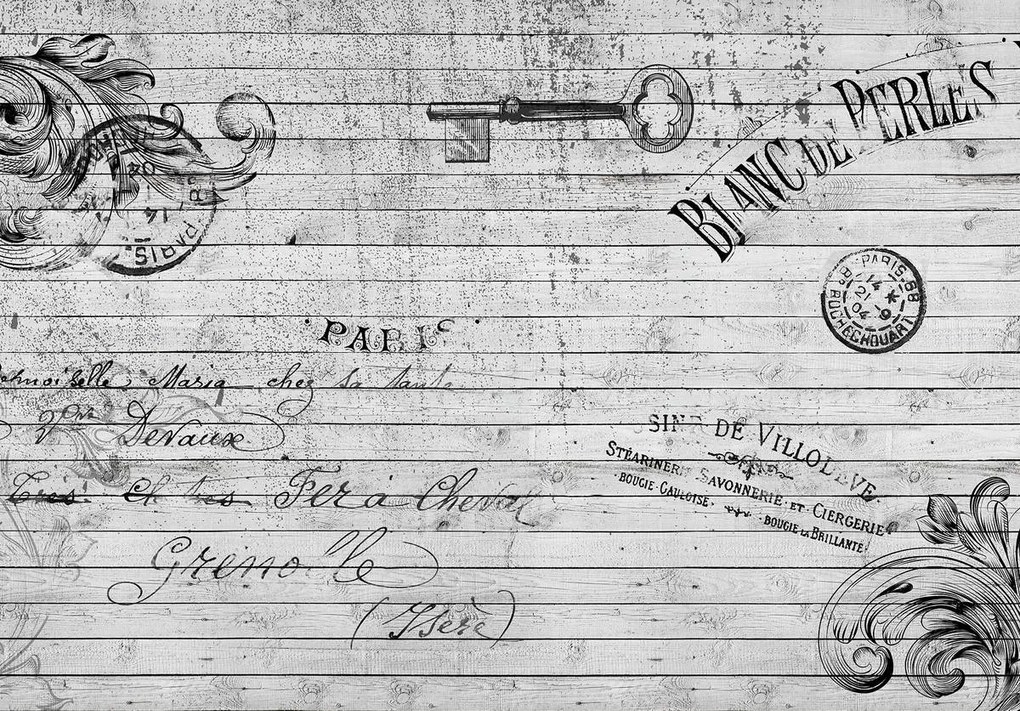 BLANC DE PERLES
PARIS
PARIS·68
14
21 9
04
Bd ROCHECHOUART
PARIS
Maria chez sa tante
Vve Devaux
Très
Fer à Cheval
Grenoble
(Isère)
DE VILLOL
STÉARINER SAVONNERIE·ET·CIERGERIE
·BOUGIE·GAULOISE· ·BOUGIE LA BRILLANTE·